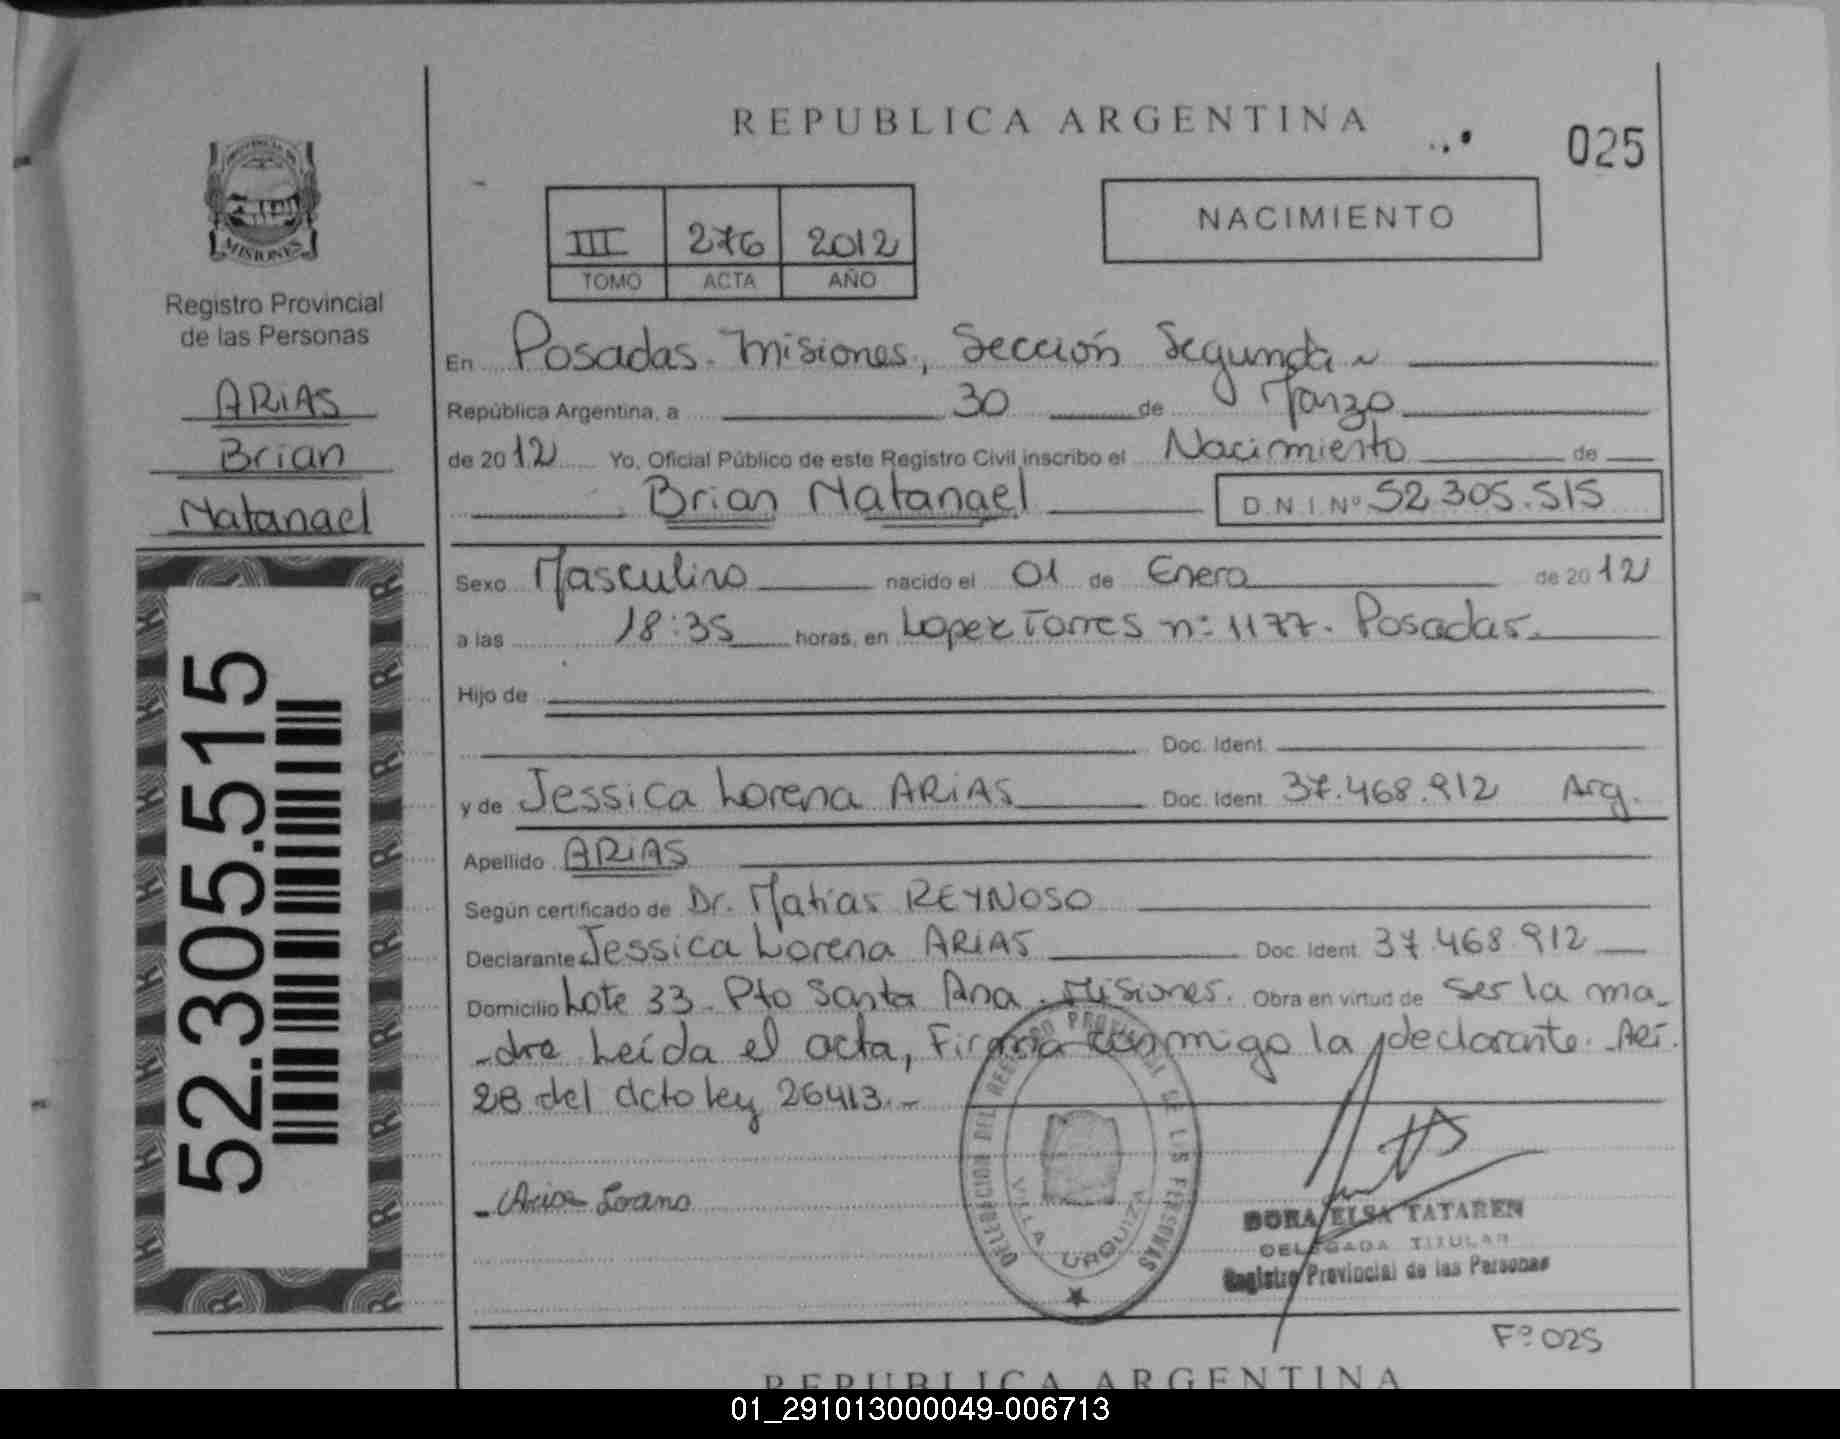 REPUBLICA ARGENTINA
025
NACIMIENTO
III 276 2012
TOMO ACTA AÑO
MISIONES
Registro Provincial
de las Personas
ARIAS
Brian
Natanael
52.305.515
En Posadas. Misiones, Sección Segunda ~
República Argentina, a 30 de Marzo
de 2012 Yo, Oficial Público de este Registro Civil inscribo el Nacimiento de
Brian Natanael D.N.I.Nº 52.305.515
Sexo Masculino nacido el 01 de Enero de 2012
a las 18:35 horas, en Lopez Torres nº 1177. Posadas.
Hijo de
Doc. Ident.
y de Jessica Lorena ARIAS Doc. Ident. 37.468.912 Arg.
Apellido ARIAS
Según certificado de Dr. Matías REYNOSO
Declarante Jessica Lorena ARIAS Doc. Ident. 37.468.912
Domicilio Lote 33. Pto Santa Ana. Misiones. Obra en virtud de ser la ma-
-dre Leída el acta, Firma conmigo la declarante. Art.
28 del dcto ley 26413.-
DELEGACION DEL REGISTRO PROVINCIAL DE LAS PERSONAS
VILLA URQUIZA
Arias
DORA ELSA TATAREN
DELEGADA TITULAR
Registro Provincial de las Personas
Fº 025
REPUBLICA ARGENTINA
01_291013000049-006713